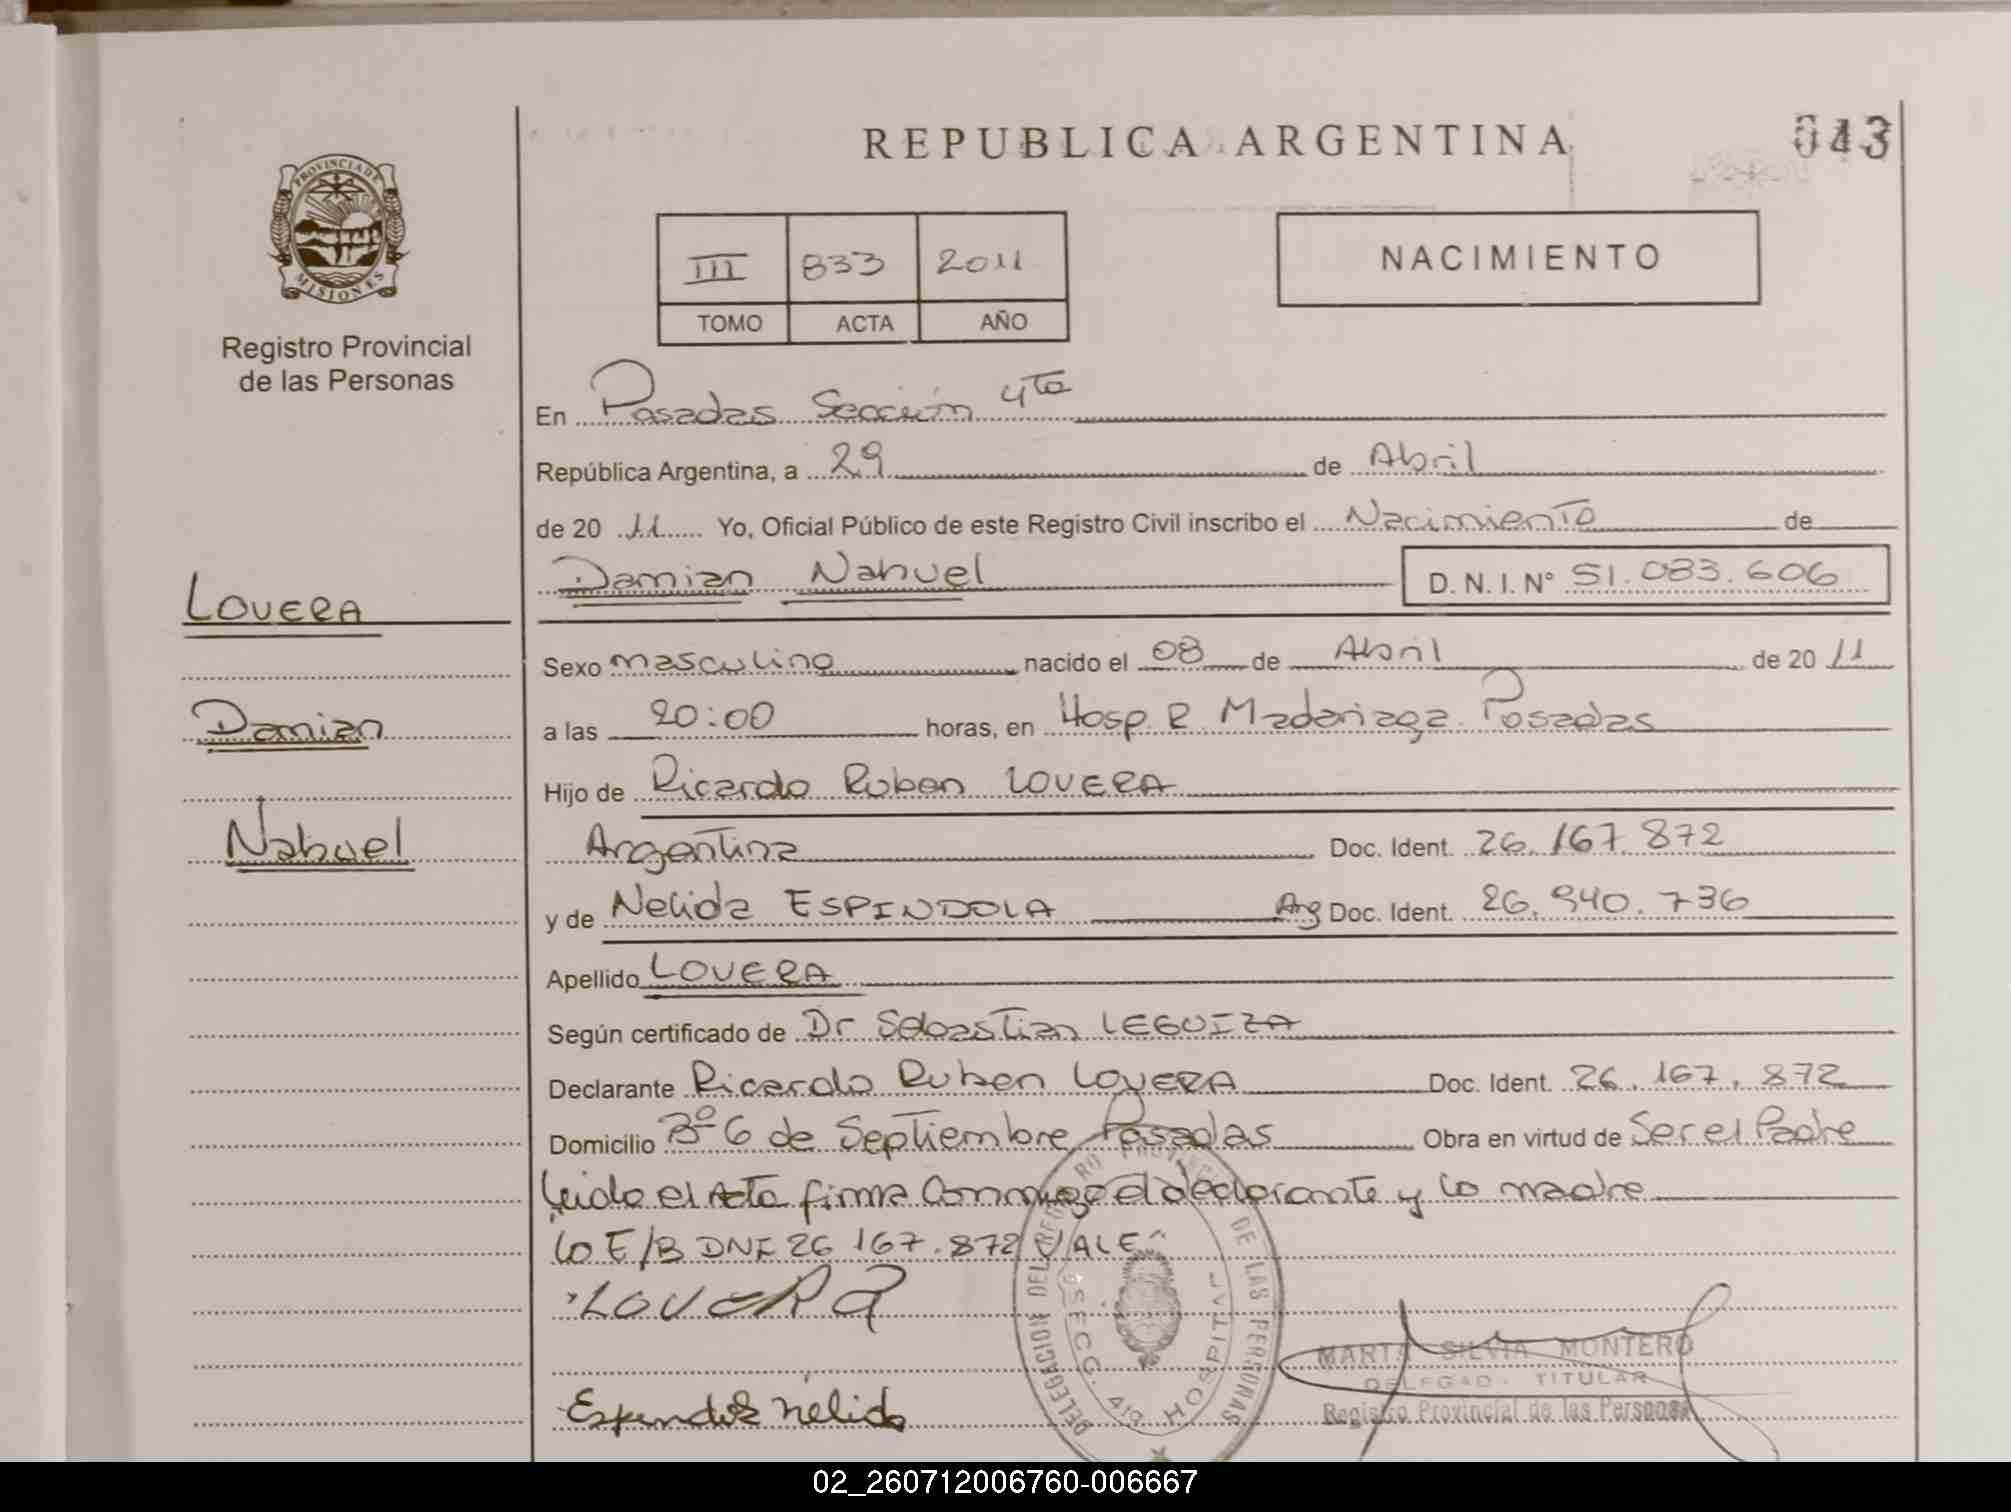 REPUBLICA ARGENTINA
043
PROVINCIA DE MISIONES
Registro Provincial
de las Personas
III 833 2011
TOMO ACTA AÑO
NACIMIENTO
En Posadas Sección 4ta
República Argentina, a 29 de Abril
de 20 11 Yo, Oficial Público de este Registro Civil inscribo el Nacimiento de
Damian Nahuel D.N.I. N° 51.083.606
LOVERA
Damian
Nahuel
Sexo masculino nacido el 08 de Abril de 20 11
a las 20:00 horas, en Hosp. R Madariaga Posadas
Hijo de Ricardo Ruben LOVERA
Argentina Doc. Ident. 26.167.872
y de Nelida ESPINDOLA Arg Doc. Ident. 26.940.736
Apellido LOVERA
Según certificado de Dr Sebastian LEGUIZA
Declarante Ricardo Ruben LOVERA Doc. Ident. 26.167.872
Domicilio B° 6 de Septiembre Posadas Obra en virtud de Ser el Padre
Leida el Acta firma Conmigo el declarante y la madre
Lo E/B DNI 26 167.872 VALE
LOVERA
Espindola nelida
DELEGACION DEL REGISTRO PROVINCIAL DE LAS PERSONAS
SECC. 4ta HOSPITAL
MARTA SILVIA MONTERO
DELEGADA TITULAR
Registro Provincial de las Personas
02_260712006760-006667